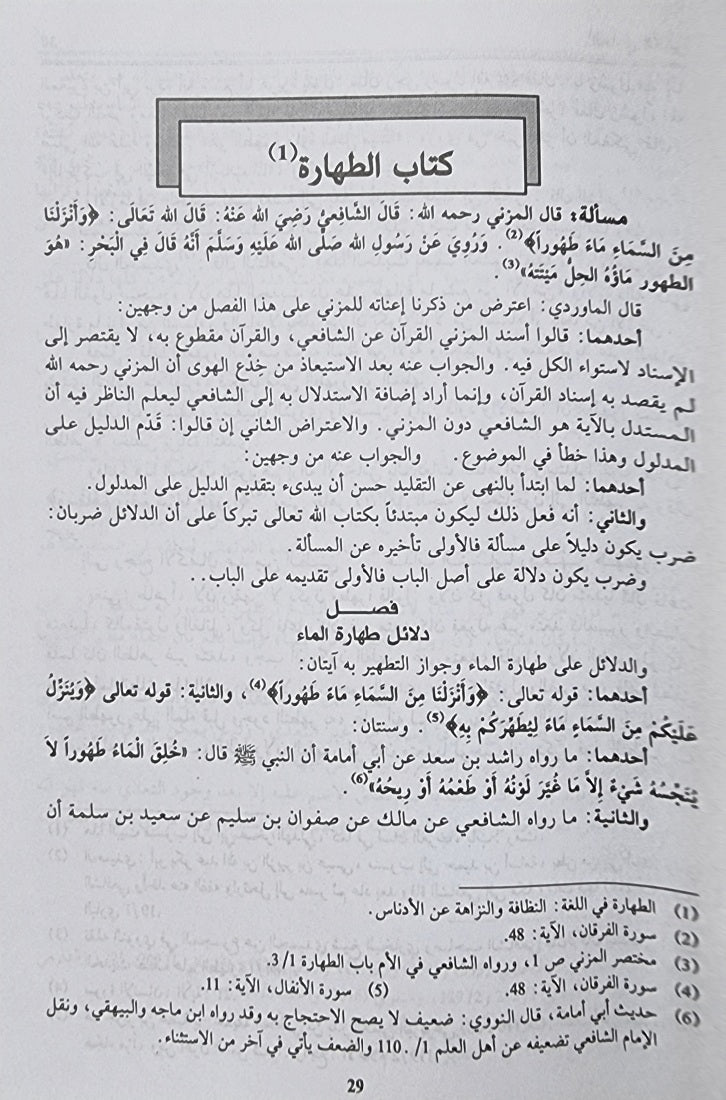 كتاب الطهارة(1)
مسألة: قال المزني رحمه الله: قَالَ الشَّافِعِيُّ رَضِيَ الله عَنْهُ: قَالَ الله تَعَالَى: ﴿وَأَنْزَلْنَا
مِنَ السَّمَاءِ مَاءً طَهُوراً﴾(2). وَرُوِيَ عَنْ رَسُولِ الله صَلَّى الله عَلَيْهِ وَسَلَّمَ أَنَّهُ قَالَ فِي الْبَحْرِ: «هُوَ
الطهور مَاؤُهُ الحِلُّ مَيْتَتَهُ»(3).
قال الماوردي: اعترض من ذكرنا إعناته للمزني على هذا الفصل من وجهين:
أحدهما: قالوا أسند المزني القرآن عن الشافعي، والقرآن مقطوع به، لا يقتصر إلى
الإسناد لاستواء الكل فيه. والجواب عنه بعد الاستيعاذ من خِدْع الهوى أن المزني رحمه الله
لم يقصد به إسناد القرآن، وإنما أراد إضافة الاستدلال به إلى الشافعي ليعلم الناظر فيه أن
المستدل بالآية هو الشافعي دون المزني. والاعتراض الثاني إن قالوا: قَدّم الدليل على
المدلول وهذا خطأ في الموضوع. والجواب عنه من وجهين:
أحدهما: لما ابتدأ بالنهى عن التقليد حسن أن يبدىء بتقديم الدليل على المدلول.
والثاني: أنه فعل ذلك ليكون مبتدئاً بكتاب الله تعالى تبركاً على أن الدلائل ضربان:
ضرب يكون دليلاً على مسألة فالأولى تأخيره عن المسألة.
وضرب يكون دلالة على أصل الباب فالأولى تقديمه على الباب..
فصل
دلائل طهارة الماء
والدلائل على طهارة الماء وجواز التطهير به آيتان:
أحدهما: قوله تعالى: ﴿وَأَنْزَلْنَا مِنَ السَّمَاءِ مَاءً طَهُوراً﴾(4)، والثانية: قوله تعالى ﴿وَيُنَزِّلُ
عَلَيْكُمْ مِنَ السَّمَاءِ مَاءً لِيُطَهِّرَكُمْ بِهِ﴾(5). وسنتان:
أحدهما: ما رواه راشد بن سعد عن أبي أمامة أن النبي ﷺ قال: «خُلِقَ الْمَاءُ طَهُوراً لاَ
يُنَجِّسُهُ شَيْءٌ إِلاَّ مَا غُيِّرَ لَوْنُهُ أَوْ طَعْمُهُ أَوْ رِيحُهُ»(6).
والثانية: ما رواه الشافعي عن مالك عن صفوان بن سليم عن سعيد بن سلمة أن
(1) الطهارة في اللغة: النظافة والنزاهة عن الأدناس.
(2) سورة الفرقان، الآية: 48.
(3) مختصر المزني ص 1، ورواه الشافعي في الأم باب الطهارة 1/ 3.
(4) سورة الفرقان، الآية: 48. (5) سورة الأنفال، الآية: 11.
(6) حديث أبي أمامة، قال النووي: ضعيف لا يصح الاحتجاج به وقد رواه ابن ماجه والبيهقي، ونقل
الإمام الشافعي تضعيفه عن أهل العلم 1/ 110. والضعف يأتي في آخر من الاستثناء.
29